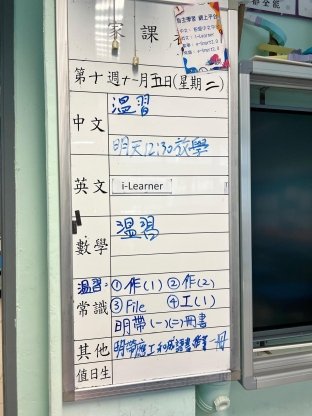 家課
自主學習 網上平台
第十週十一月五日(星期二)
中文
溫習
明天12:30放學
英文
i-Learner
數學
溫習
常識
溫習:①作(1) ②作(2)
③File ④工(1)
明帶(一)(二)冊書
其他
值日生